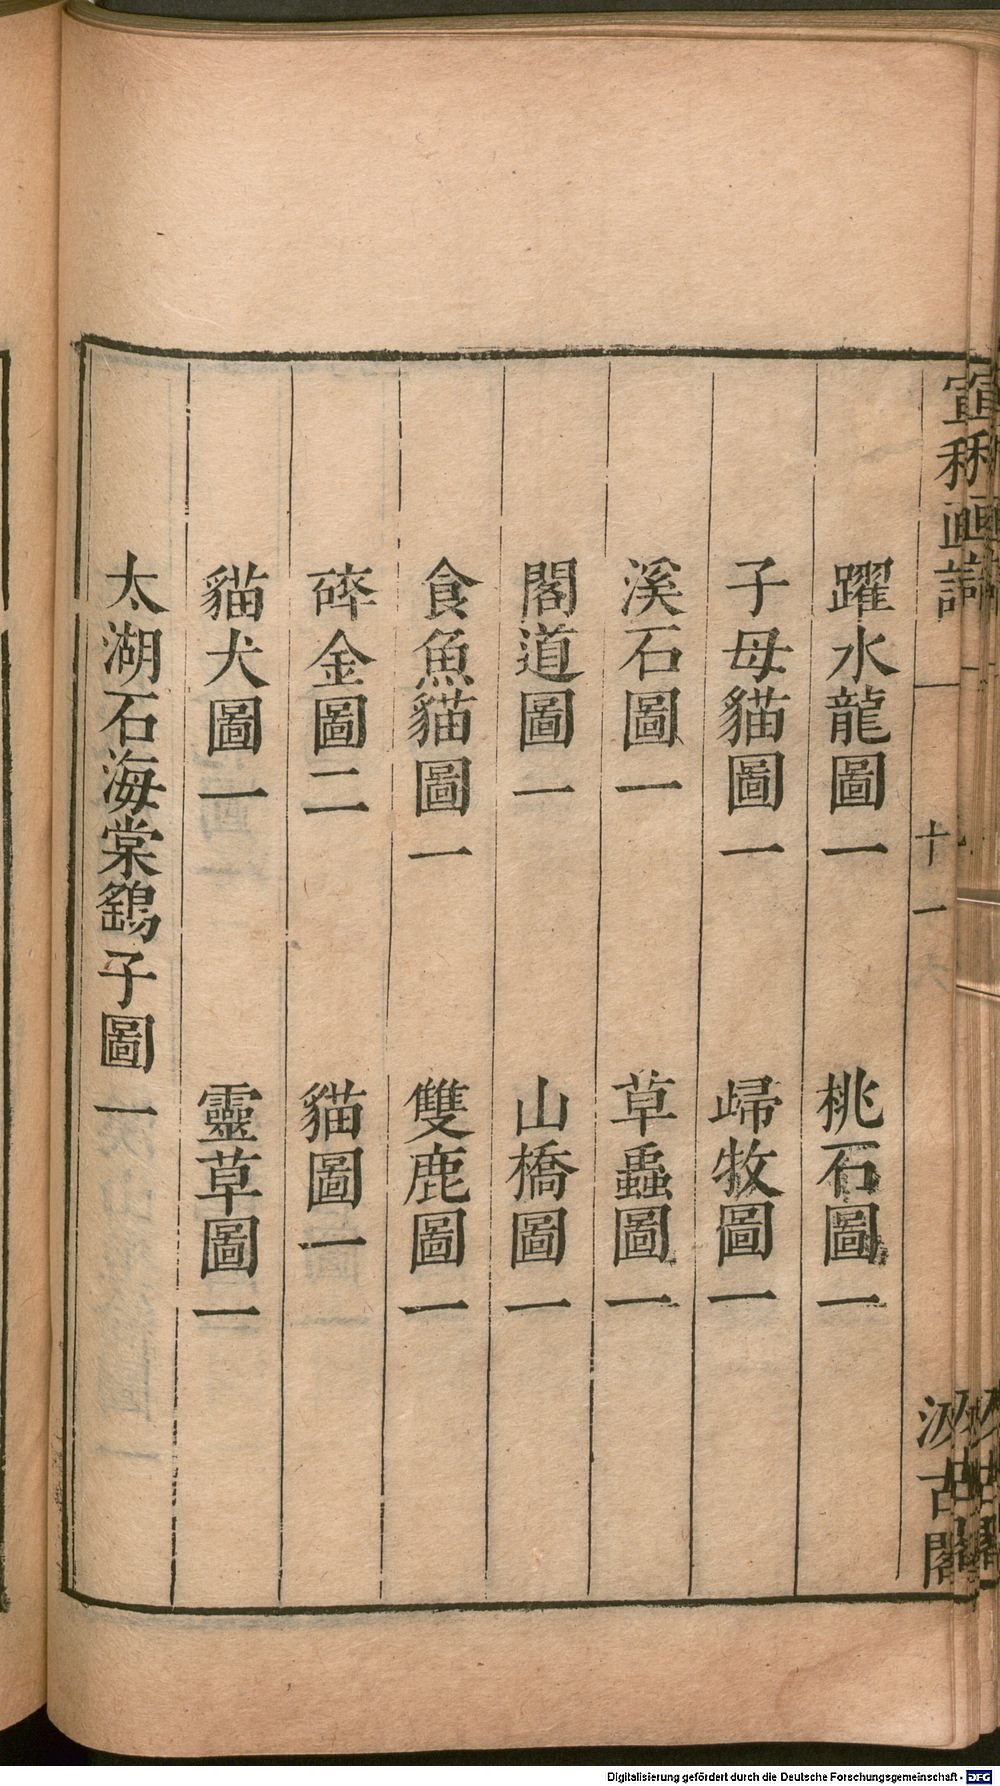 宣和画譜
十一
汲古閣
躍水龍圖一 桃石圖一
子母貓圖一 歸牧圖一
溪石圖一 草蟲圖一
閣道圖一 山橋圖一
食魚貓圖一 雙鹿圖一
碎金圖二 貓圖一
貓犬圖一 靈草圖一
太湖石海棠鷂子圖一
Digitalisierung gefördert durch die Deutsche Forschungsgemeinschaft - DFG